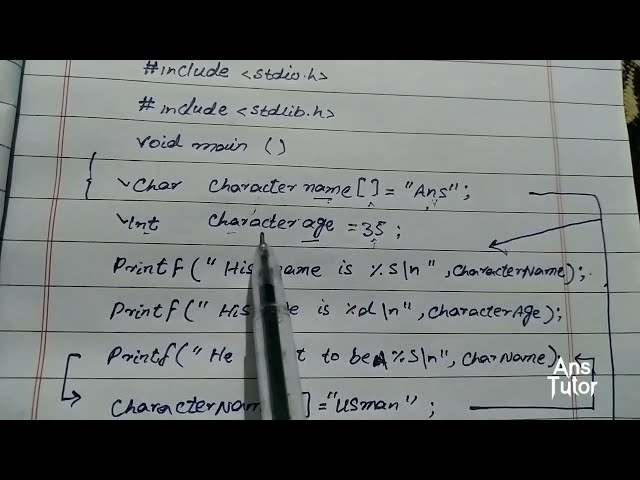 #include <stdio.h>
# include <stdlib.h>
void main ()
{ Char Character name[] = "Ans";
Int Character age = 35;
Printf(" His name is %s\n" , CharacterName);
Printf(" His is %d\n" , CharacterAge);
Printf(" He to be %s\n", CharName);
CharacterName ] = "Usman" ;
Ans
Tutor